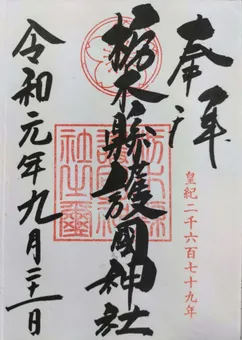 奉拝
皇紀二千六百七十九年
栃木縣護國神社
栃木縣
護國神
社之璽
令和元年九月二十一日